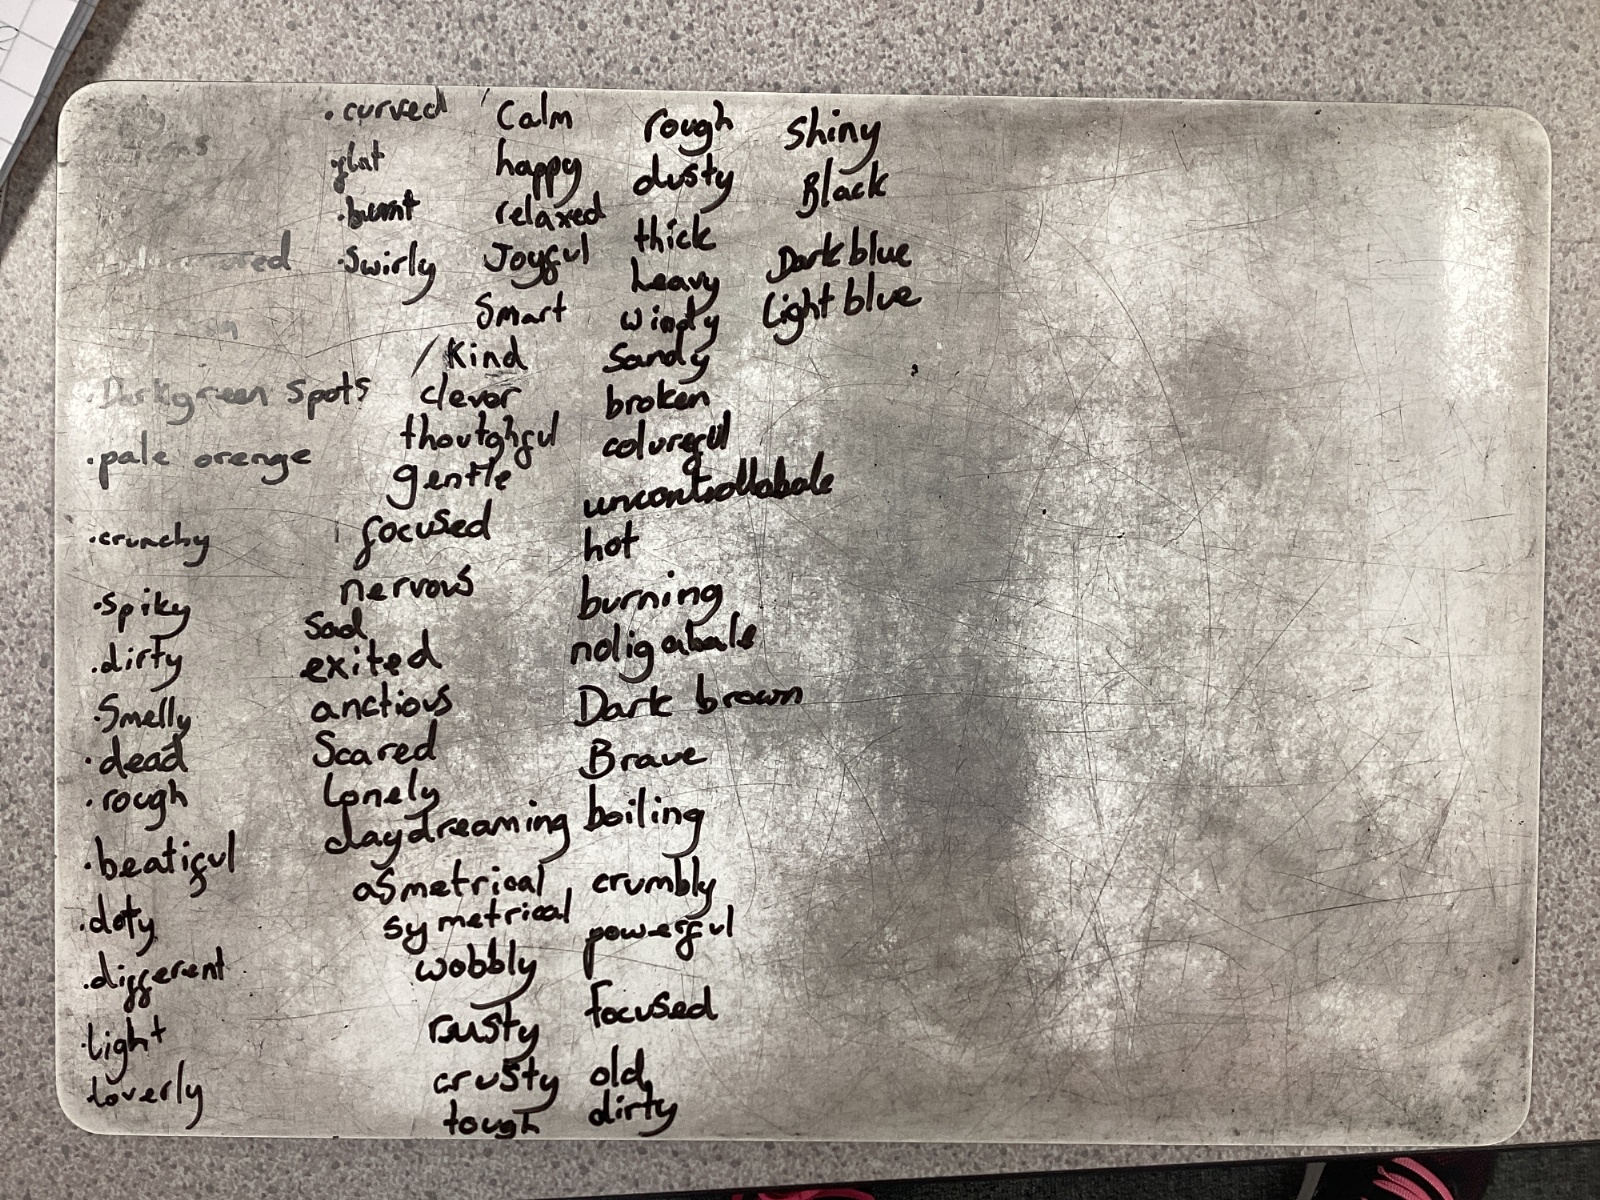 .Darkgreen spots
.pale orenge
.crunchy
.spiky
.dirty
.Smelly
.dead
.rough
.beatiful
.doty
.different
.light
.loverly
.curved
.burnt
.Swirly
Calm
happy
relaxed
Joyful
Smart
Kind
clever
thoutghful
gentle
focused
nervous
Sad
exited
anctious
Scared
Lonely
daydreaming
asmetrical
symetrical
wobbly
rusty
crusty
tough
rough
dusty
thick
heavy
windy
Sandy
broken
colureful
uncontrollabale
hot
burning
noligabale
Dark brown
Brave
boiling
crumbly
powerful
focused
old
dirty
Shiny
Black
Dark blue
Light blue